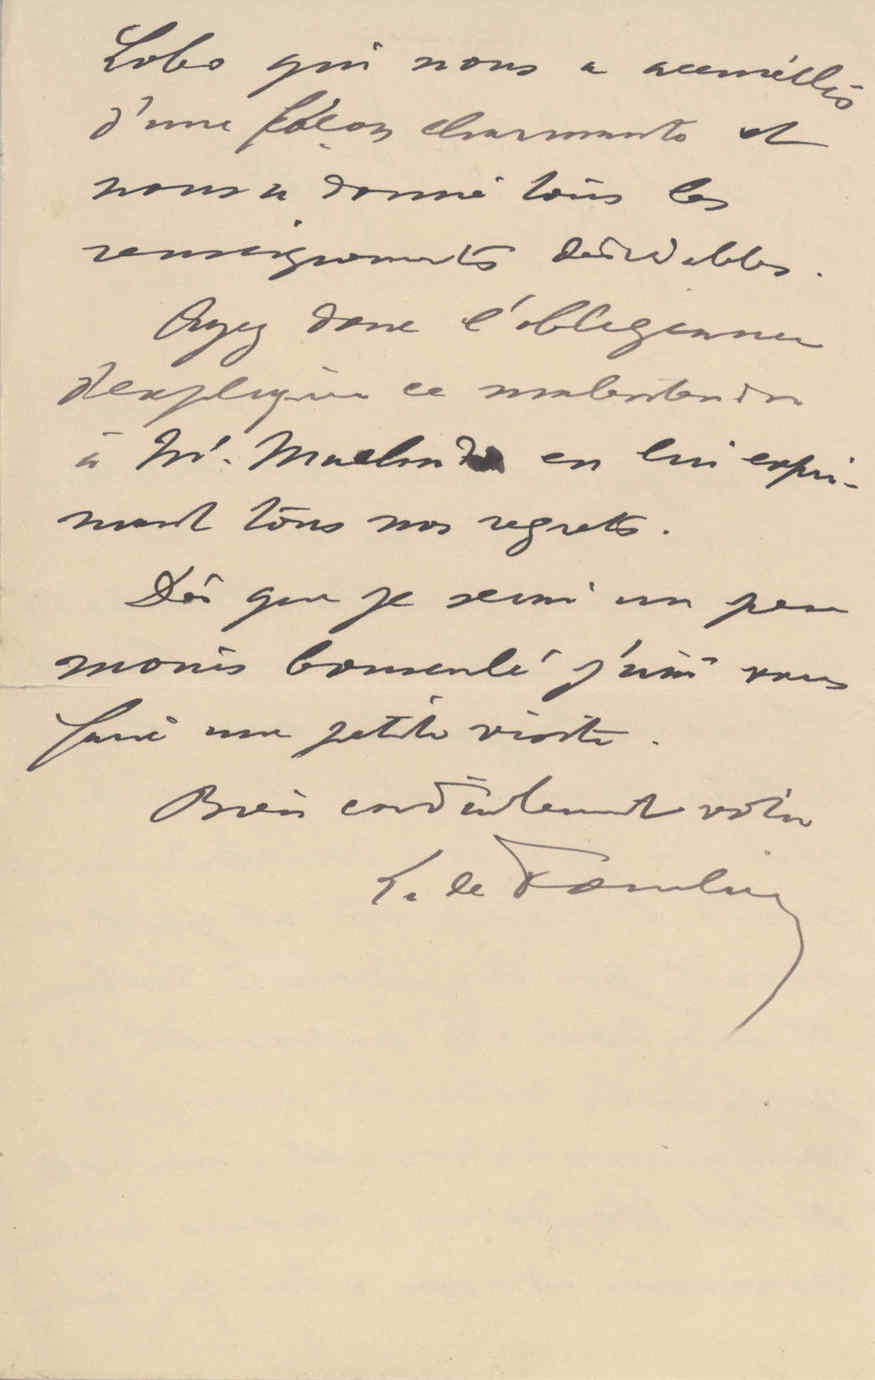 Lobo qui nous a accueillis
d'une façon charmante et
nous a donné tous les
renseignements désirables.
Ayez donc l'obligeance
d'expliquer ce malentendu
à Mr. Machado en lui expri-
mant tous nos regrets.
Dès que je serai un peu
moins bousculé j'irai vous
faire une petite visite.
Bien cordialement votre
L. de